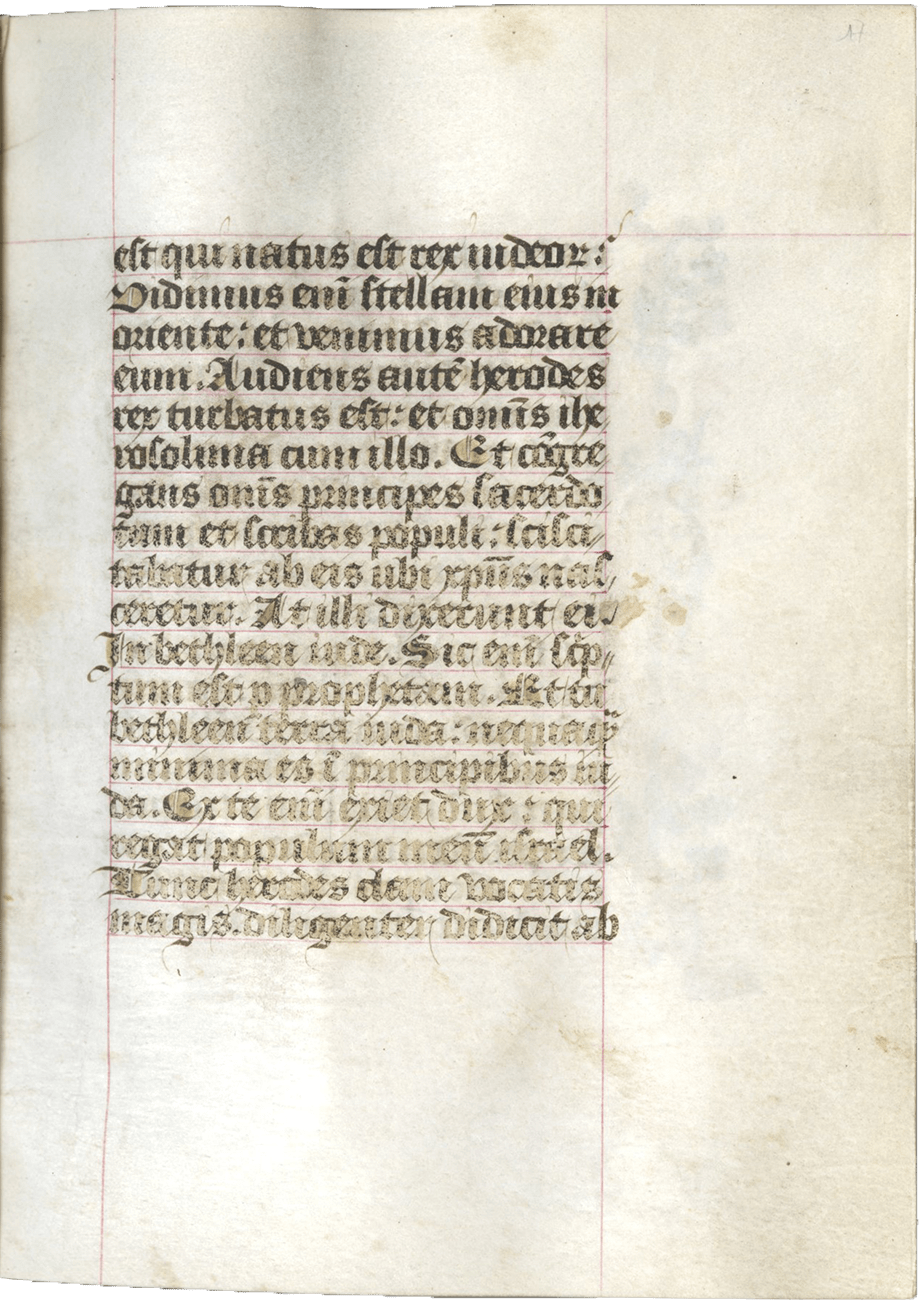 17
est qui natus est rex iudeor:
Vidimus eni̅ stellam eius in
oriente: et venimus adorare
eum. Audiens aute̅ herodes
rex turbatus est: et omi̅s ihe
rosolima cum illo. Et co̅gre
gans omi̅s principes sacerdo
tum et scribas populi: scisci
tabatur ab eis ubi xpu̅s nas
ceretur. At illi dixerunt ei.
In bethleem iude. Sic eni̅ sc̅p
tum est ꝑ prophetam. Et tu
bethleem terra iuda: nequaq̅
minima es i̅ principibus iu
da. Ex te eni̅ exiet dux: qui
regat populum meu̅ israel.
Tunc herodes clam vocatis
magis. diligenter didicit ab